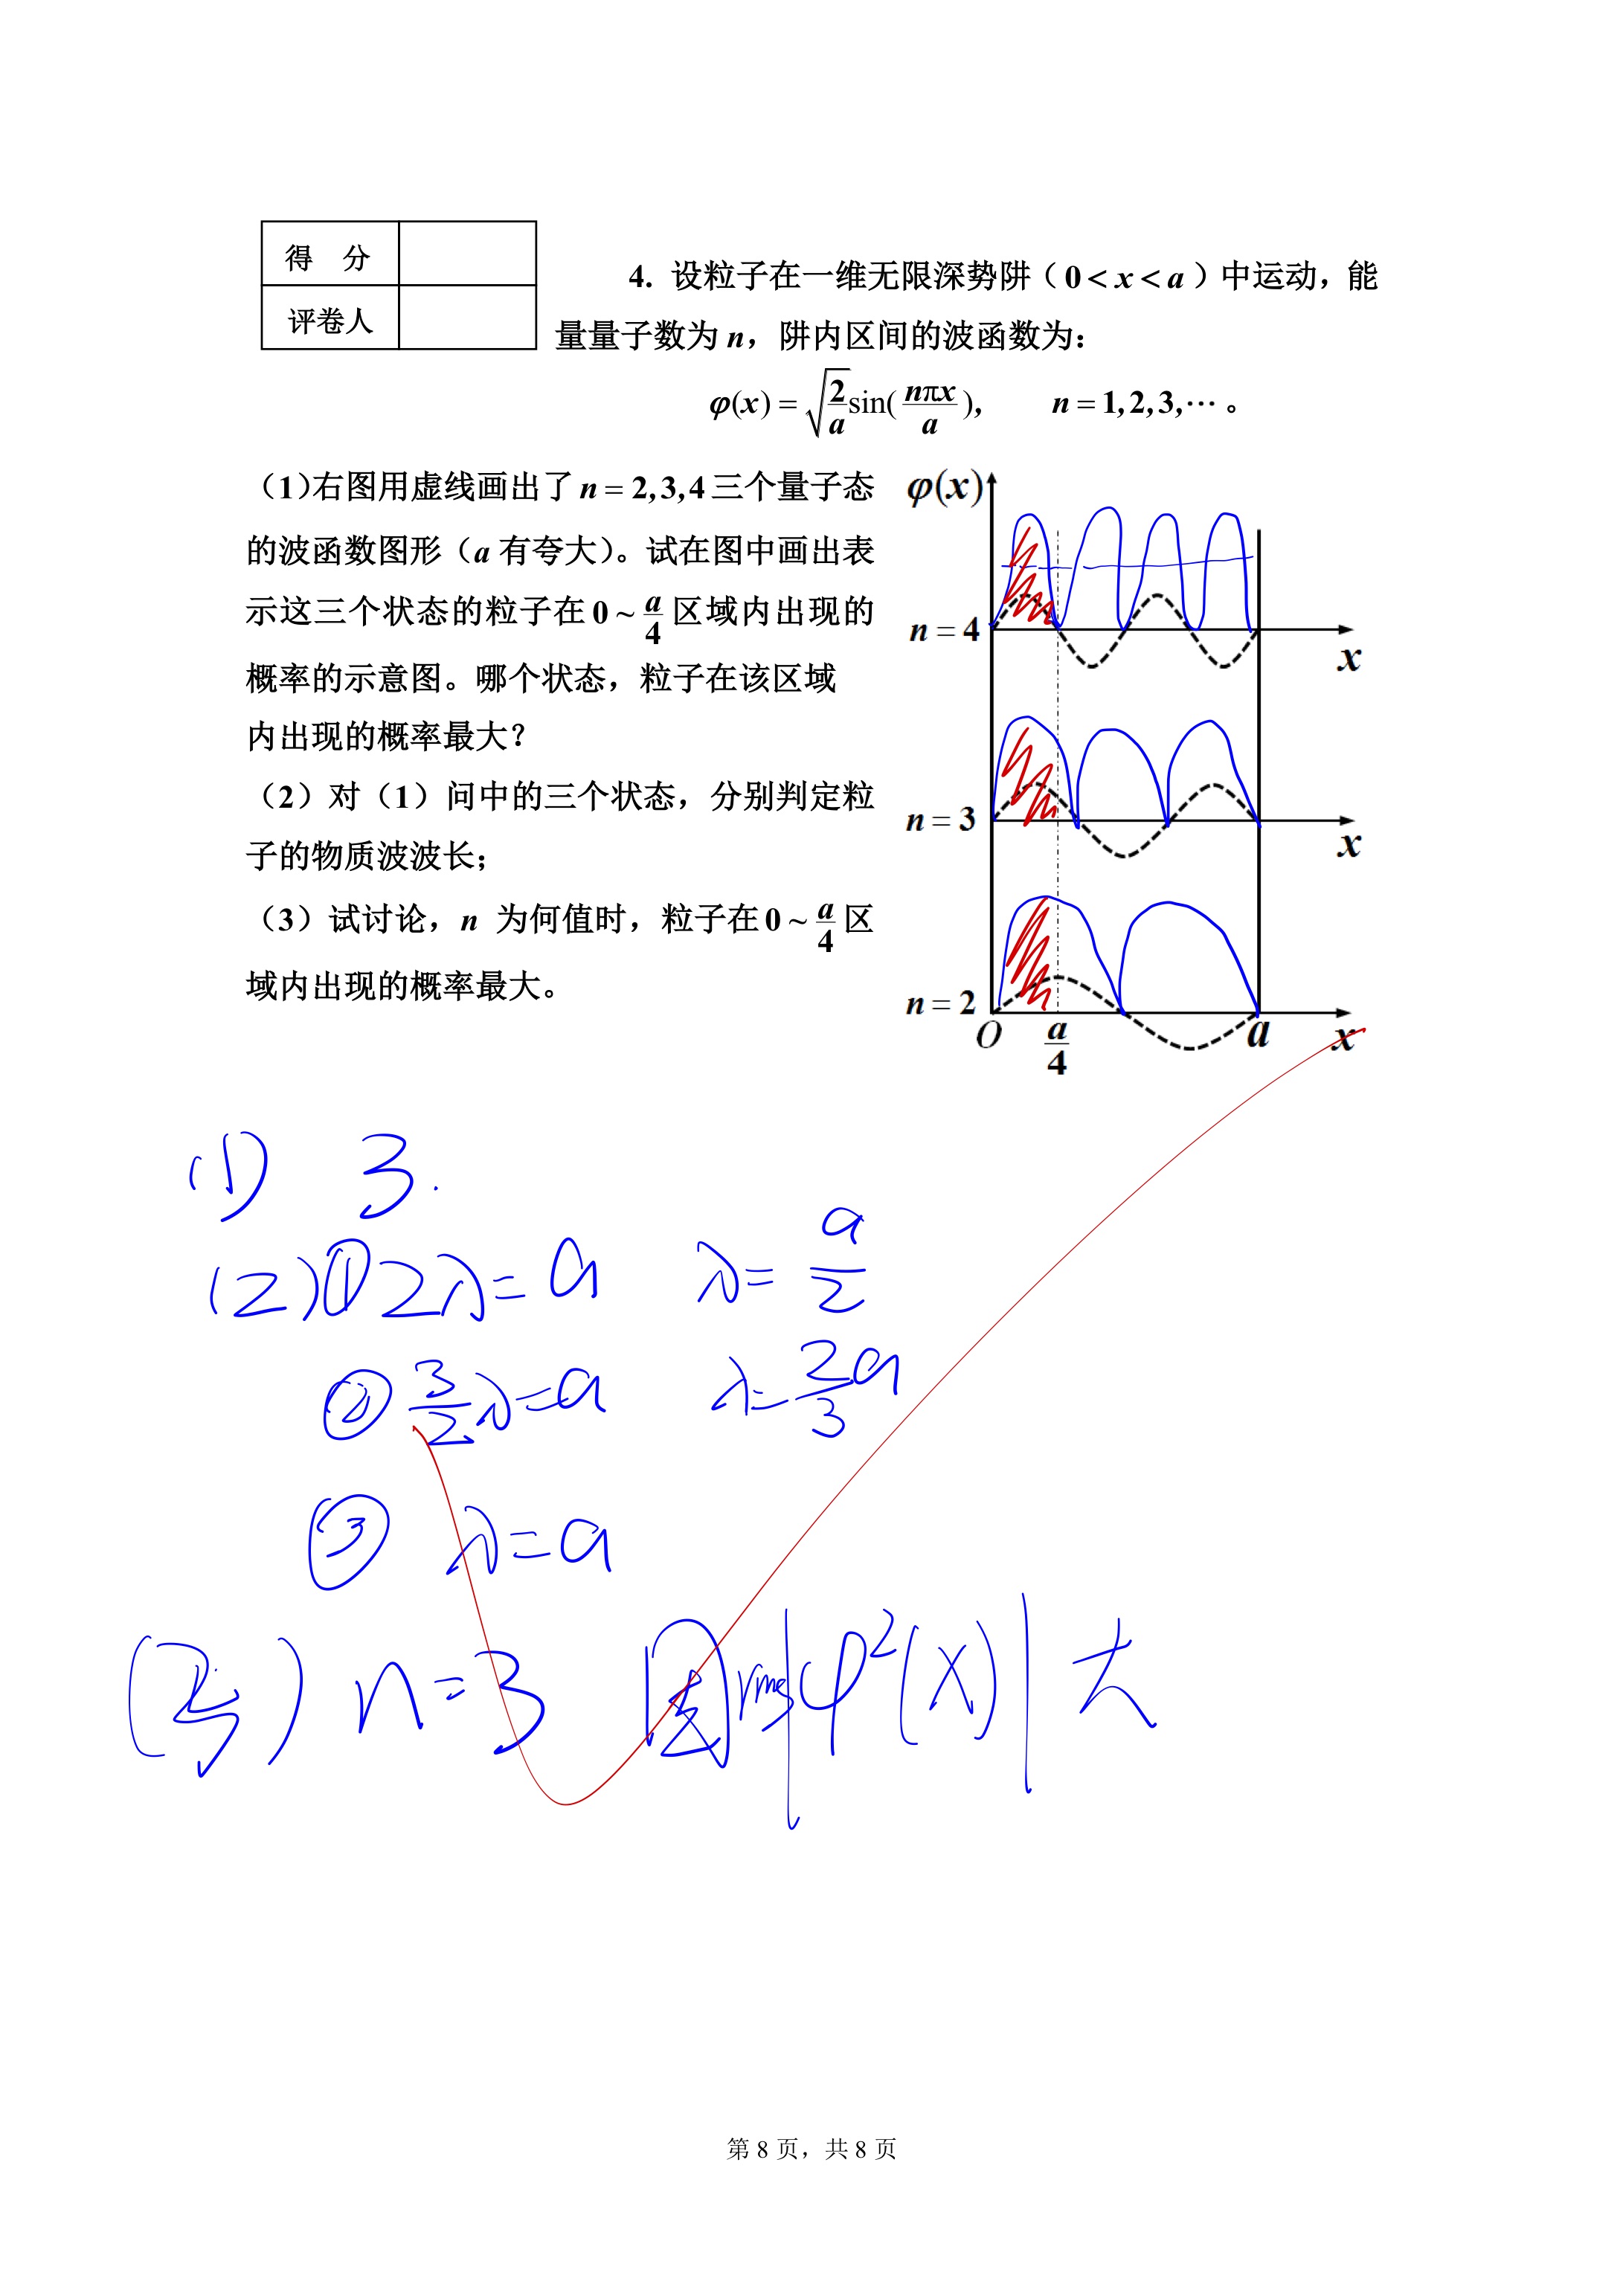 得 分
评卷人
4. 设粒子在一维无限深势阱（0 < x < a）中运动，能
量量子数为 n，阱内区间的波函数为：
φ(x) = √(2/a) sin(nπx/a), n = 1, 2, 3, ⋯ 。
（1）右图用虚线画出了 n = 2, 3, 4 三个量子态
的波函数图形（a 有夸大）。试在图中画出表
示这三个状态的粒子在 0 ~ a/4 区域内出现的
概率的示意图。哪个状态，粒子在该区域
内出现的概率最大？
（2）对（1）问中的三个状态，分别判定粒
子的物质波波长；
（3）试讨论，n 为何值时，粒子在 0 ~ a/4 区
域内出现的概率最大。
φ(x)
n = 4
x
n = 3
x
n = 2
O
a/4
a
x
(1) 3.
(2) ① 2λ = a λ = a/2
② 3/2 λ = a λ = 2/3 a
③ λ = a
(3) n = 3 |φ²(x)| 大
第 8 页，共 8 页